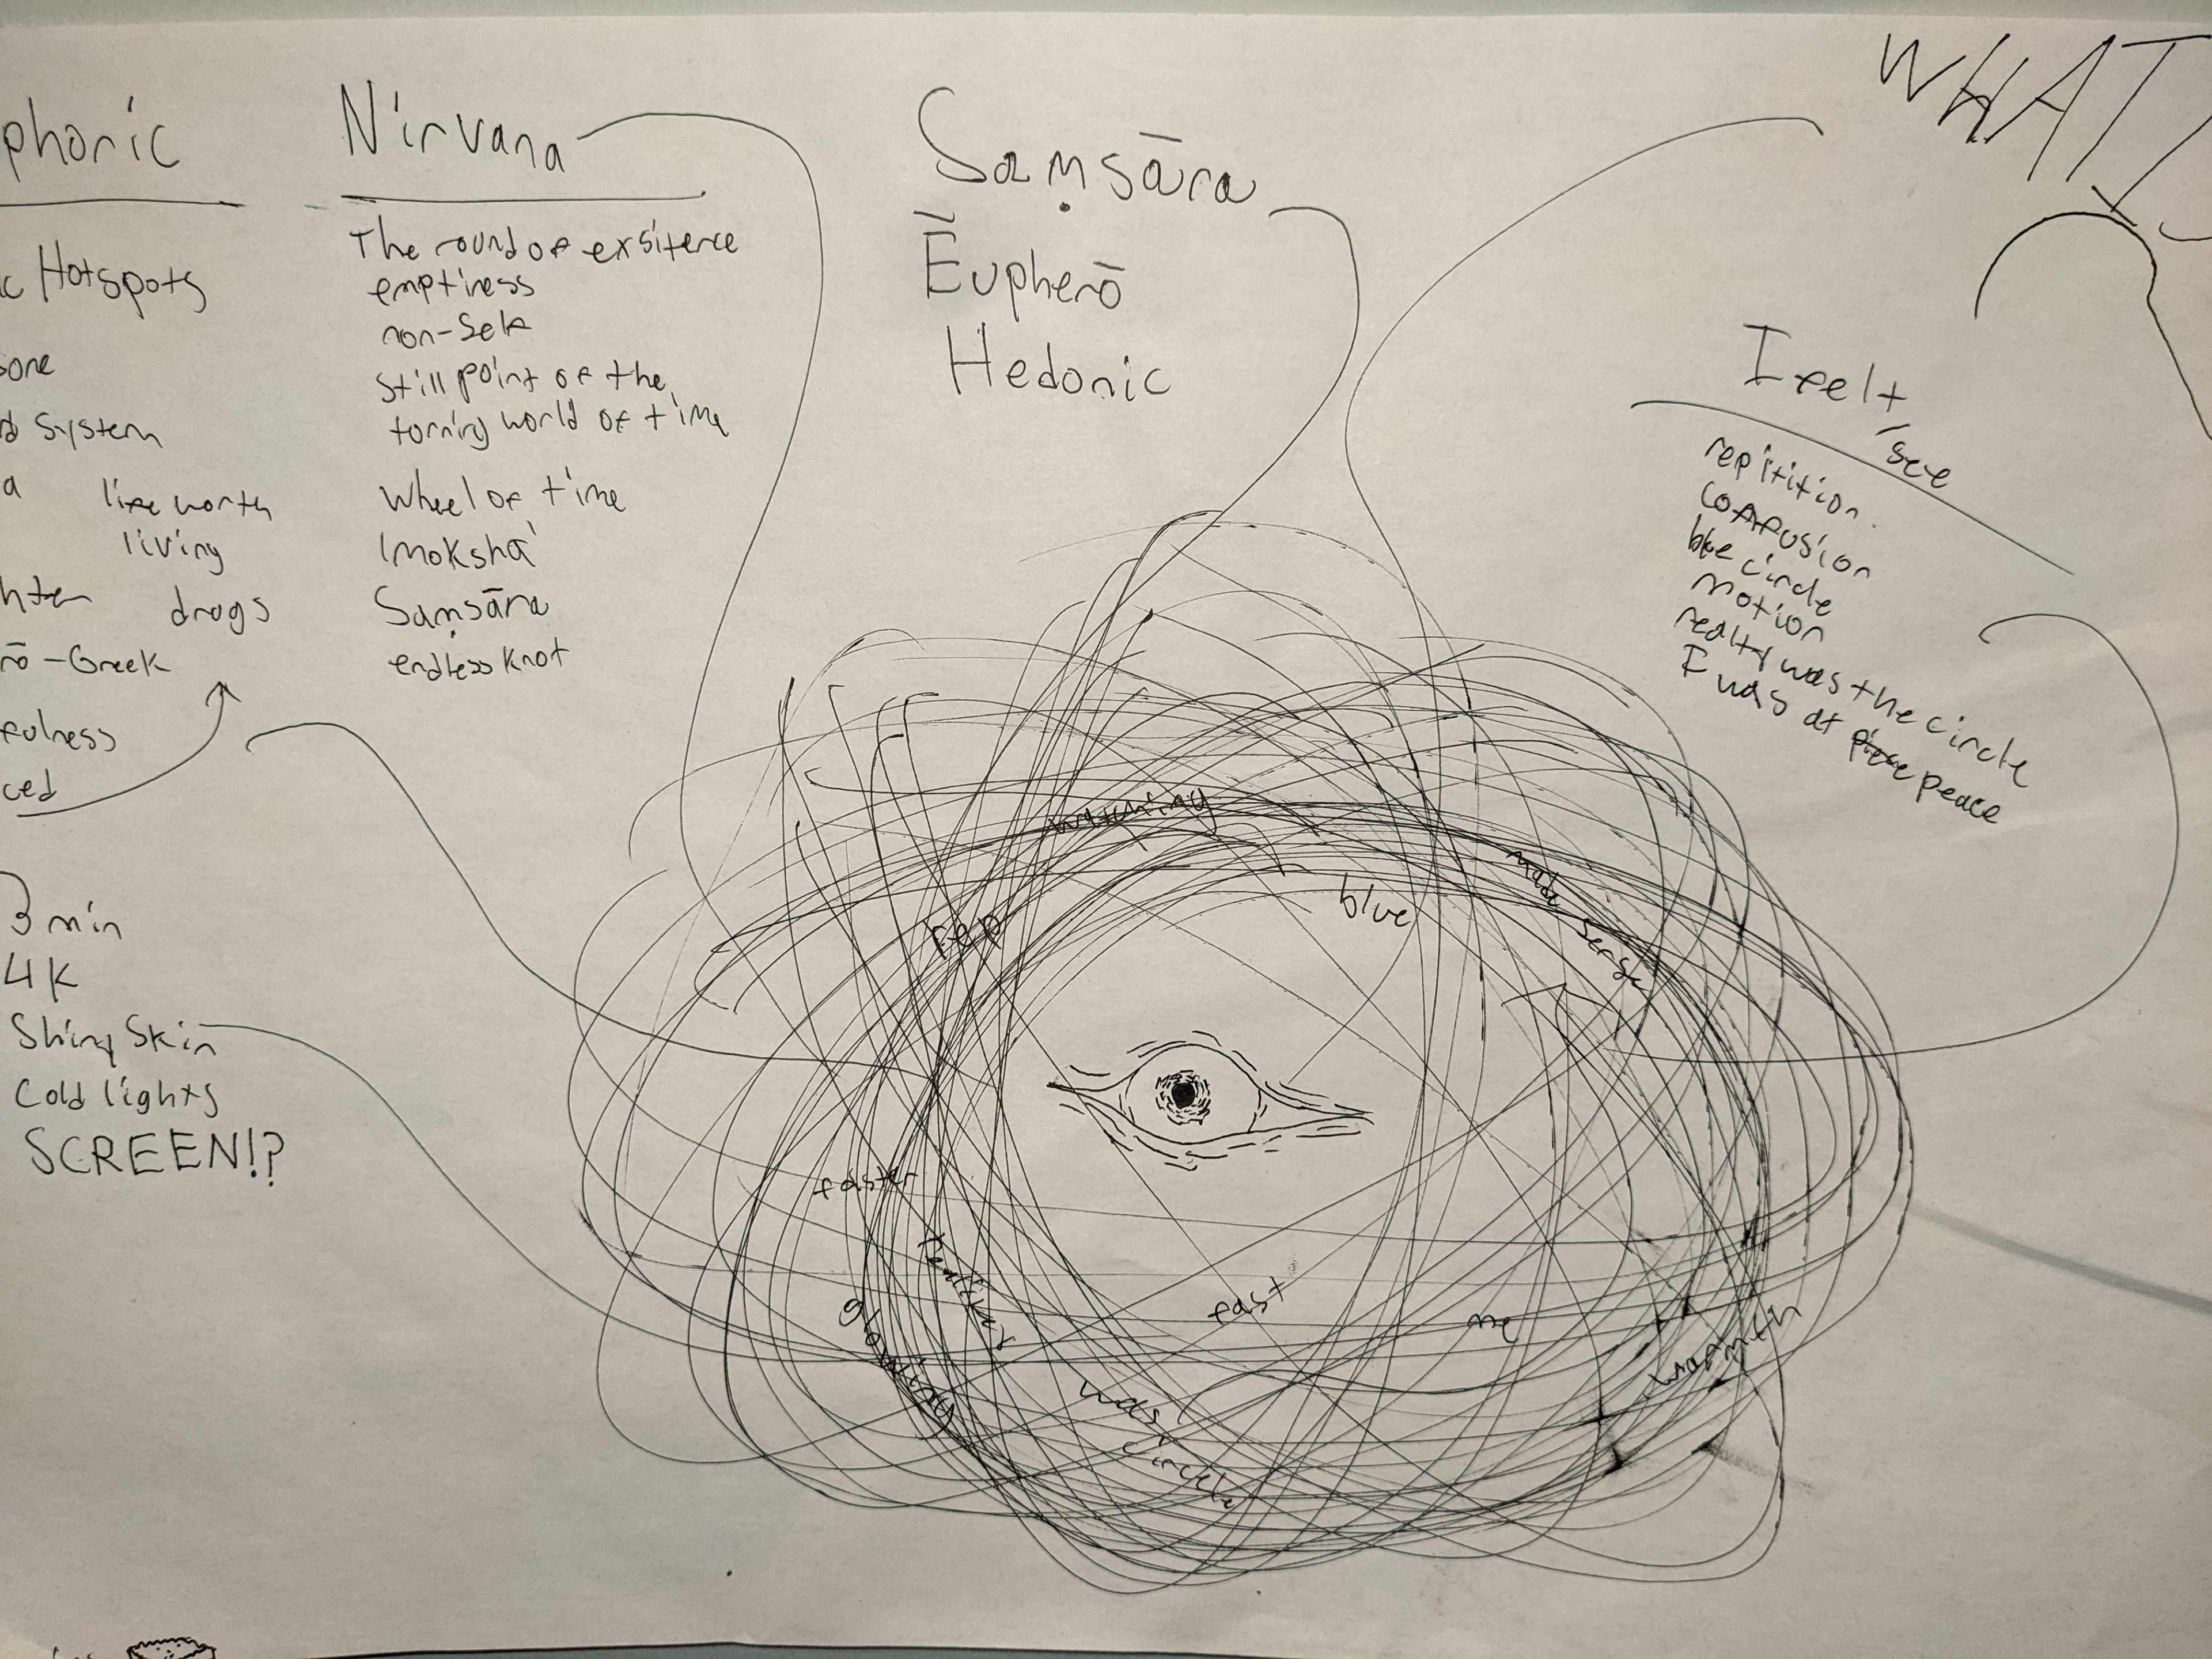 phoric
Hotspots
system
life worth
living
drogs
-Greek
ced
3 min
4K
Shiny Skin
Cold lights
SCREEN!?
Nirvana
The round of exsitence
emptiness
non-Self
Still point of the
turning world of time
Wheel of time
Moksha
Saṃsāra
endless knot
Saṃsāra
Ēupherō
Hedonic
WHAT I
I felt
/see
repitition
confusion
blue circle
motion
realty was the circle
I was at peace
watching
rep
blue
made sense
faster
reality
glowing
fast
me
warmth
was
circle